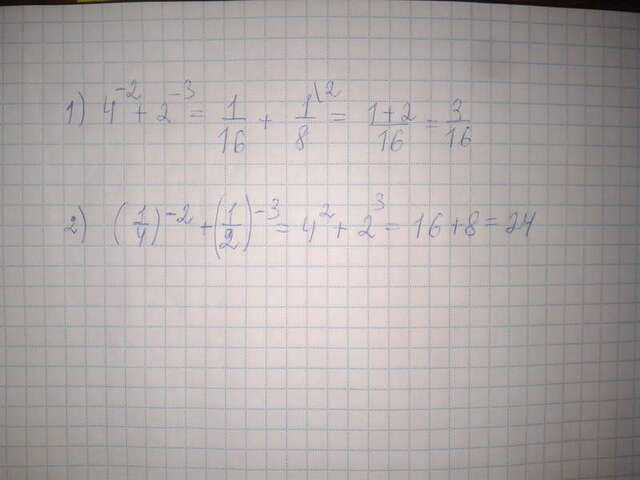 1) 4^-2 + 2^-3 = 1/16 + 1/8 \2 = (1+2)/16 = 3/16
2) (1/4)^-2 + (1/2)^-3 = 4^2 + 2^3 = 16+8 = 24